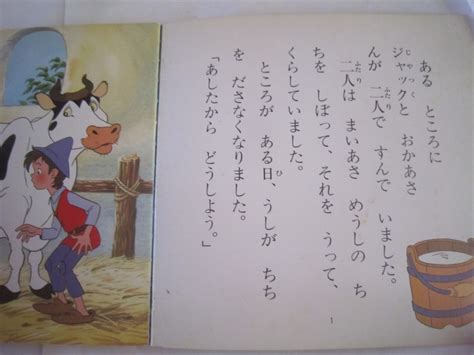 ある ところに
ジャックと おかあさ
んが 二人で すんで いました。
二人は まいあさ めうしの ち
ちを しぼって、それを うって、
くらしていました。
ところが ある日、うしが ちち
を ださなくなりました。
「あしたから どうしよう。」
1